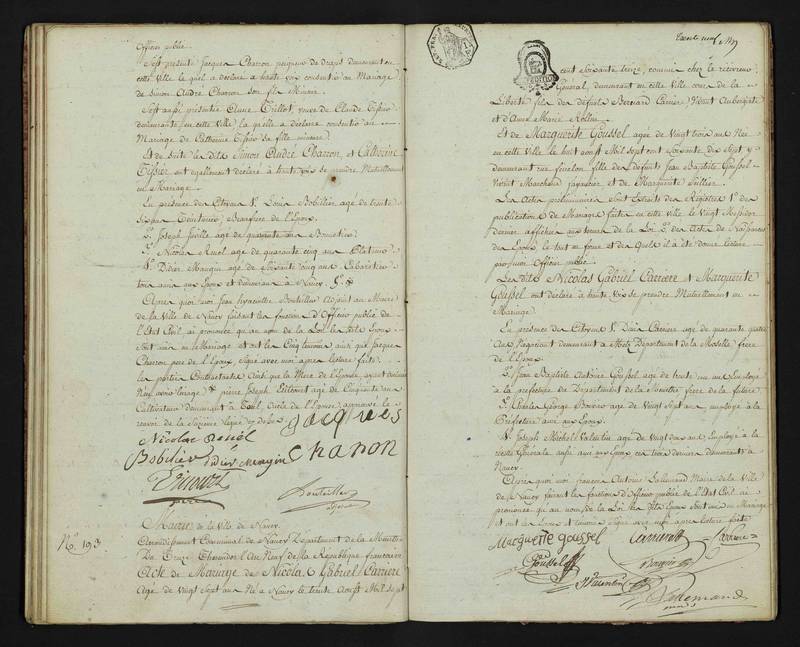 Officier public.
Sest présenté Jacques Charron peigneur de draps demeurant en
cette Ville le quel a déclaré a haute voix consentir au Mariage
de Simon André Charron son fils Mineur.
Sest aussi présentée Anne Trillot, veuve de Claude Tissier
demeurante en cette Ville laquelle a déclaré consentir au
Mariage de Catherine Tissier sa fille mineure.
Et de suite les dits Simon André Charron, et Catherine
Tissier ont également déclaré a haute voix se prendre Mutuellement
en Mariage.
En présence des Citoyens 1°. Louis Bobillier agé de trente
Six ans Teinturier, Beaufrere de l'Epoux.
2°. Joseph agé de quarante ans Bonnetier
3°. Nicolas Ruel age de quarante cinq ans Platineur
4°. Didier Mangin age de Soixante cinq ans Cabaretier
tous amis aux Epoux et demeurant à Nancy.
Après quoi moi Jean hyacinthe Boutellier Adjoint au Maire
de la Ville de Nancy faisant les fonctions d'Officier public de
l'Etat Civil ai prononcé qu'au nom de la Loi les dits Epoux
sont unis en Mariage et ont les Cinq témoins, ainsi que Jacques
Charron pere de l'Epoux, signé avec moi après lecture faite.
les parties Contractantes Ainsi que la Mere de l'Epouse, ayant déclaré
Neuf avoir lusage pierre Joseph agé de Cinquante ans
Cultivateur demeurant à Toul, oncle de l'Epouse, approuvé la
Nicolas Ruel jacques
Bobilier didier Mengin charon
Boutellier
adjoint
N°. 193
Mairie de la Ville de Nancy.
Arrondissement Communal de Nancy Département de la Meurthe
Du Treize Thermidor l'An Neuf de la République française
Acte de Mariage de Nicolas Gabriel Carriere
Age de Vingt Sept ans Né a Nancy le trente Aoust Mil sept
cent soixante treize, commis chez le receveur
Général, demeurant en cette Ville cours de la
Liberté fils des défunts Bernard Carriere Vivant Aubergiste
et d'Anne Marie Nollin
Et de Marguerite Goussel agée de Vingt trois ans Née
en cette Ville le huit aoust Mil Sept cent soixante dix Sept y
demeurant rue fenelon fille des Défunts Jean Baptiste Goussel
Vivant Marchand et de Marguerite
Les Actes préliminaires sont Extraits des Registres 1°. des
publications de Mariage faites en cette Ville le Vingt Messidor
dernier affichées aux termes de la Loi 2°. des Actes de Naissances
des Epoux le tout en forme et des Quels il a été donné lecture
par moi Officier public.
Les dits Nicolas Gabriel Carriere et Marguerite
Goussel ont déclaré à haute voix se prendre Mutuellement en
Mariage.
En présence des Citoyens 1°. Louis Carriere age de quarante quatre
ans Négociant demeurant a Metz Département de la Moselle frere
de l'Epoux.
2°. Jean Baptiste Antoine Goussel age de trente un ans Employé
à la préfecture du Département de la Meurthe frere de la future.
3°. Charles George age de Vingt Sept ans employé à la
Préfecture ami aux Epoux.
4°. Joseph Michel Valentin age de Vingt deux ans Employé à la
recette Générale aussi ami aux Epoux ces trois derniers demeurants à
Nancy.
Après quoi moi francois Antoine Lallemand Maire de la Ville
de Nancy faisant les fonctions d'Officier public de l'Etat Civil ai
prononcé qu'au nom de la Loi les dits Epoux sont unis en Mariage
et ont les Epoux et témoins Signé avec moi après lecture faite
Marguerite Goussel Carriere
Goussel
Valentin
Lallemand
maire